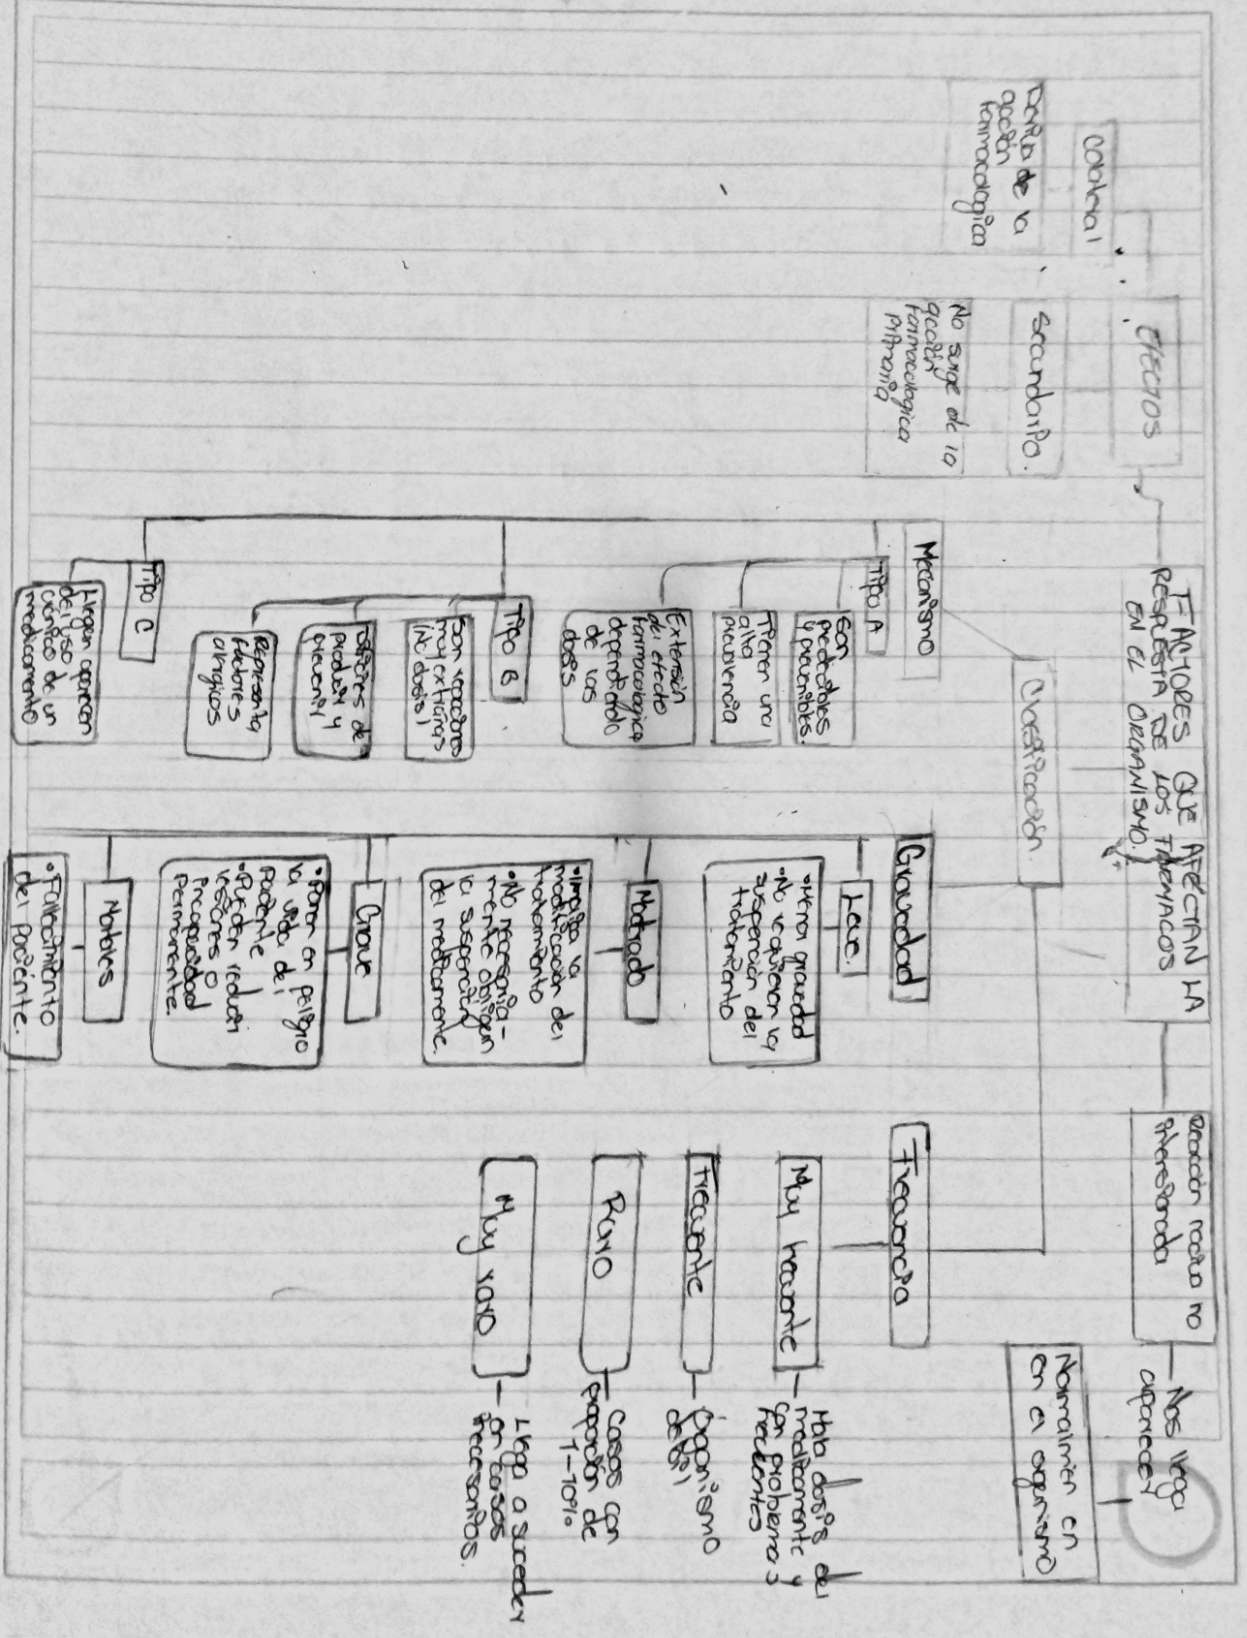 FACTORES QUE AFECTAN LA
RESPUESTA DE LOS FARMYACOS
EN EL ORGANISMO.
EFECTOS
Colateral
Deriva de la
acción
farmacologica
Secundario.
No surge de la
acción
farmacologica
primaria
Reacción nociva no
interesionada
Nos llega
aparecer
Normalmen en
en el organismo
Clasificación.
Mecanismo
Tipo A
Son
predecibles
y prevenibles.
Tienen una
alta
prevalencia
Extensión
del efecto
farmacologica
dependiendo
de las
dosis
Tipo B
Son reacciones
muy extrañas
(no dosis)
de
producir y
prevenir
Representa
factores
alergicos
Tipo C
Llegan aparecen
del uso
crónico de un
medicamento
Gravedad
Leve.
•Menor gravedad
•No requieren la
suspención del
tratamiento
Moderado
•Implica la
modificación del
tratamiento
•No necesaria-
mente obligan
la suspención
del medicamente.
Grave
•Ponen en peligro
la vida del
paciente
•Pueden reducir
lesiones o
incapacidad
permanente.
Mortales
•Fallecimiento
del paciente.
Frecuencia
Muy frecuente
Mala dosis del
medicamente y
con problemas
frecuentes
Frecuente
Organismo
debil
Raro
Casos con
proporción de
1-10%
Muy raro
Llega a suceder
en casos
innecesarios.